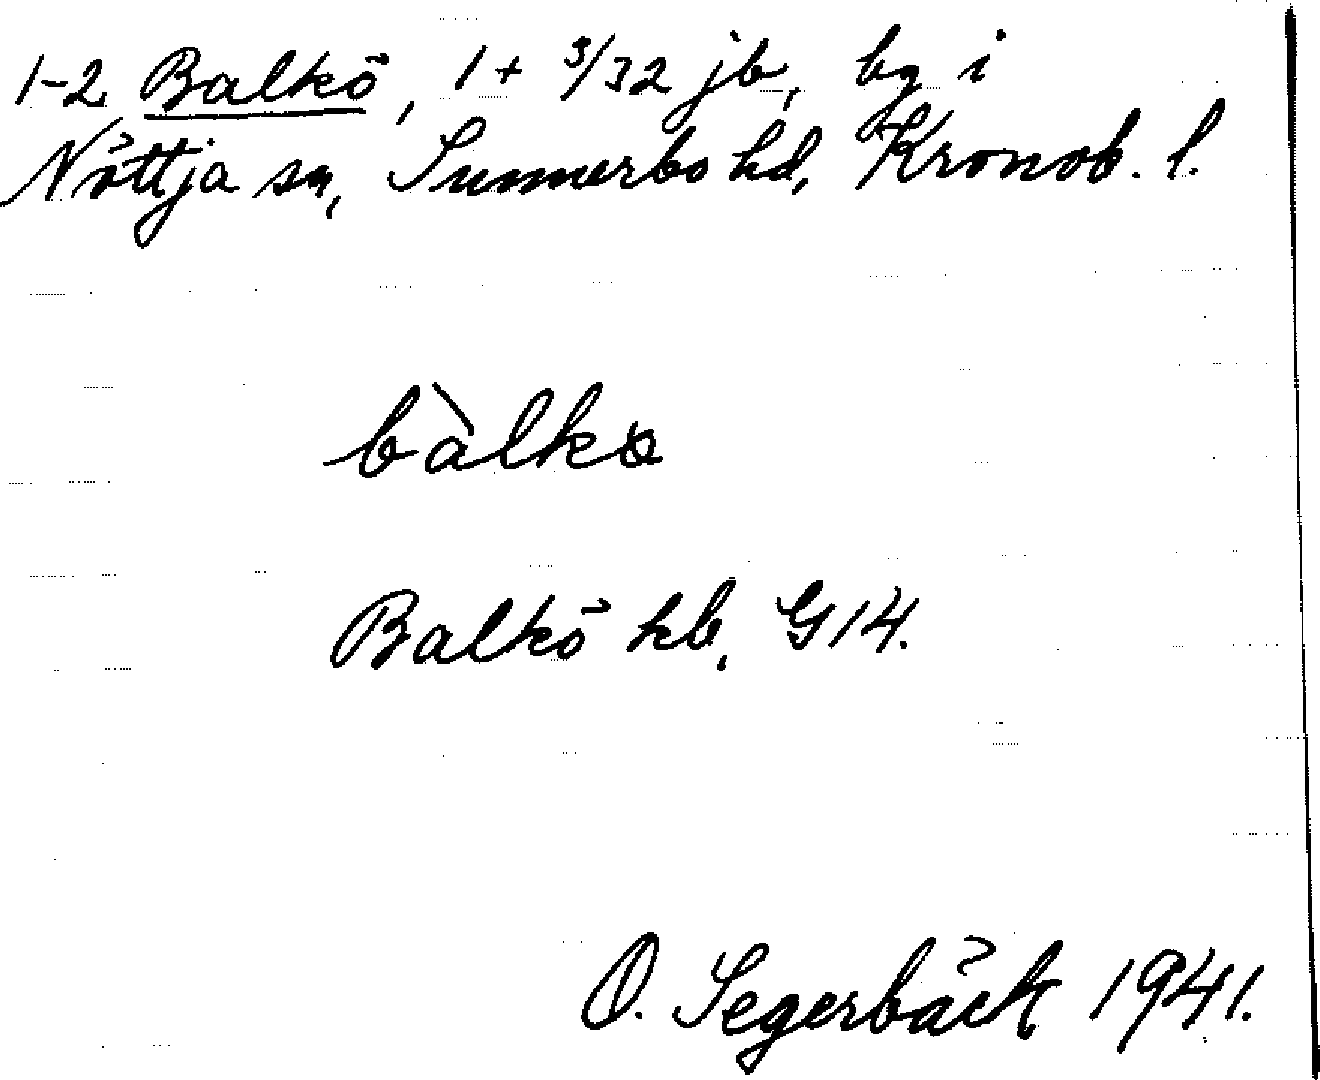 1-2 Balkö, 1 + 3/32 jb, bg i
Nöttja sn, Sunnerbo hd, Kronob. l.
bàlkø
Balkö kb, G14.
O. Segerbäck 1941.